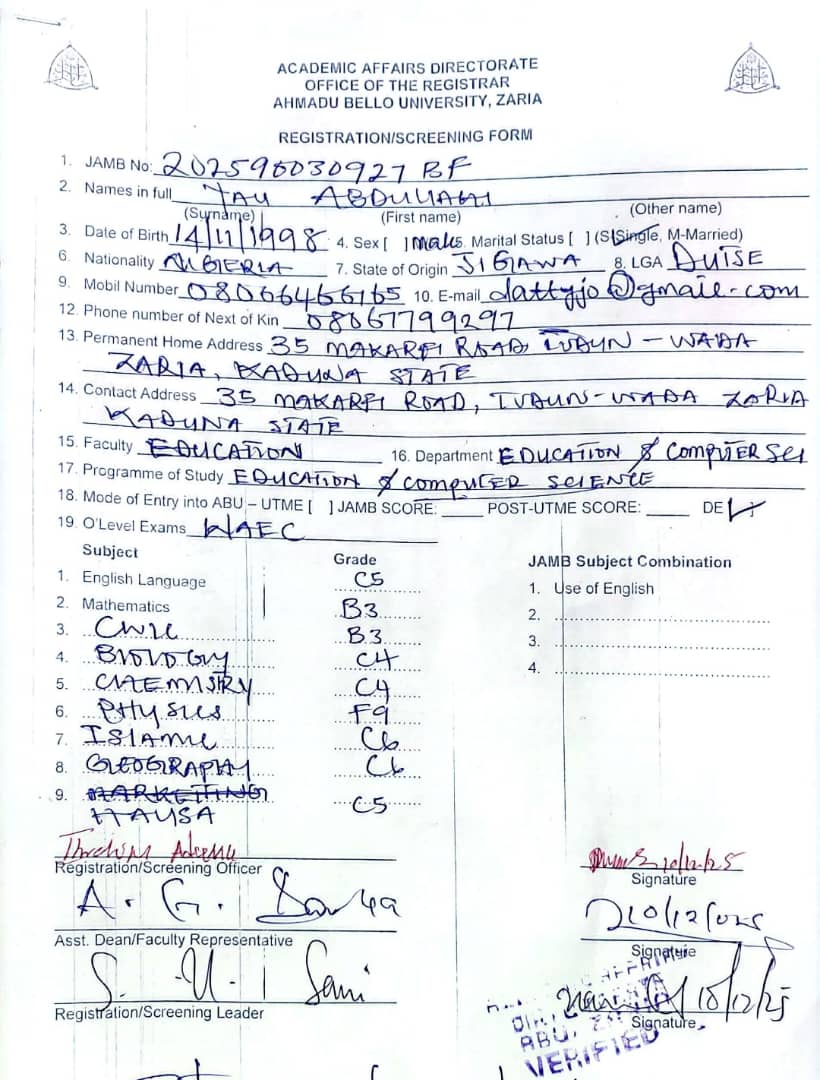 ACADEMIC AFFAIRS DIRECTORATE
OFFICE OF THE REGISTRAR
AHMADU BELLO UNIVERSITY, ZARIA
REGISTRATION/SCREENING FORM
1. JAMB No: 202590030927 BF
2. Names in full
(Surname) (First name) (Other name)
3. Date of Birth 14/11/1998 4. Sex [ ] Male. Marital Status [ ] (S-Single, M-Married)
6. Nationality NIGERIA 7. State of Origin JIGAWA 8. LGA DUTSE
9. Mobil Number 08066466165 10. E-mail dattyjo@gmail.com
12. Phone number of Next of Kin 08067799297
13. Permanent Home Address 35 MAKARFI ROAD, TUDUN-WADA
ZARIA, KADUNA STATE
14. Contact Address 35 MAKARFI ROAD, TUDUN-WADA ZARIA
KADUNA STATE
15. Faculty EDUCATION 16. Department EDUCATION & COMPUTER SCI
17. Programme of Study EDUCATION & COMPUTER SCIENCE
18. Mode of Entry into ABU – UTME [ ] JAMB SCORE: ____ POST-UTME SCORE: ____ DE ✓
19. O'Level Exams WAEC
Subject Grade JAMB Subject Combination
1. English Language C5 1. Use of English
2. Mathematics B3 2.
3. CIVIC B3 3.
4. BIOLOGY C4 4.
5. CHEMISTRY C4
6. PHYSICS F9
7. ISLAMIC C6
8. GEOGRAPHY C6
9. MARKETING C5
HAUSA
10/12/25
Registration/Screening Officer Signature
A. G.
10/12/025
Asst. Dean/Faculty Representative Signature
S. U. Sani 10/12/25
Registration/Screening Leader Signature
ABU, 
VERIFIED